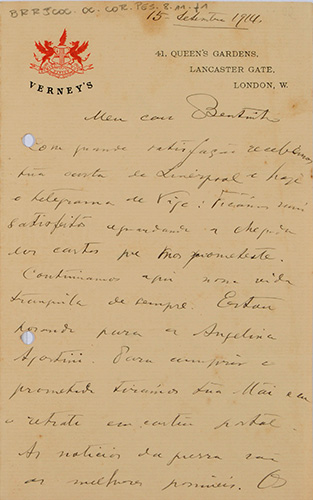 BRRJCOC. OC. COR. PES. 2. 11. f1
15 Setembro 1914.
41, QUEEN'S GARDENS,
LANCASTER GATE,
LONDON, W.
VERNEY'S
Meu caro Bentinho
Com grande satisfação recebemos
tua carta de Liverpool e hoje
o telegrama de Vigo: Ficamos
satisfeitos aguardando a chegada
das cartas que nos prometeste.
Continuamos aqui nossa vida
tranquila de sempre. Estou
posando para a Angelina
Agostini. Para cumprir o
prometido tiramos tua Mãi e eu
o retrato em cartão postal.
As noticias da guerra são
as melhores possiveis. Os